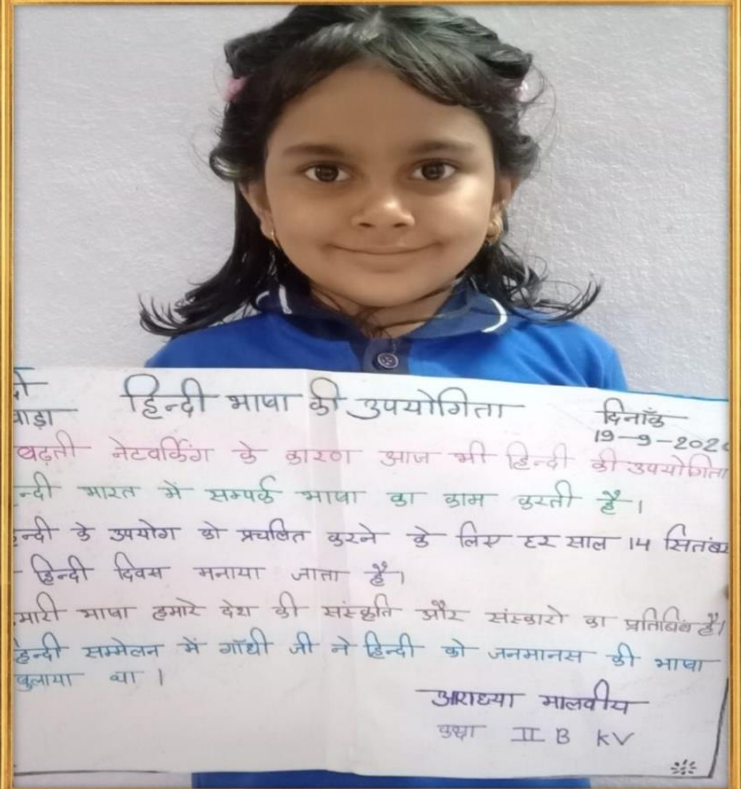 हिन्दी भाषा की उपयोगिता
दिनाँक
19-9-202
बढ़ती नेटवर्किंग के कारण आज भी हिन्दी की उपयोगिता
न्दी भारत में सम्पर्क भाषा का काम करती है।
न्दी के उपयोग को प्रचलित करने के लिए हर साल 14 सितंबर
हिन्दी दिवस मनाया जाता है।
मारी भाषा हमारे देश की संस्कृति और संस्कारो का प्रतिबिंब है।
हिन्दी सम्मेलन में गाँधी जी ने हिन्दी को जनमानस की भाषा
बुलाया था।
आराध्या मालवीय
कक्षा II B KV